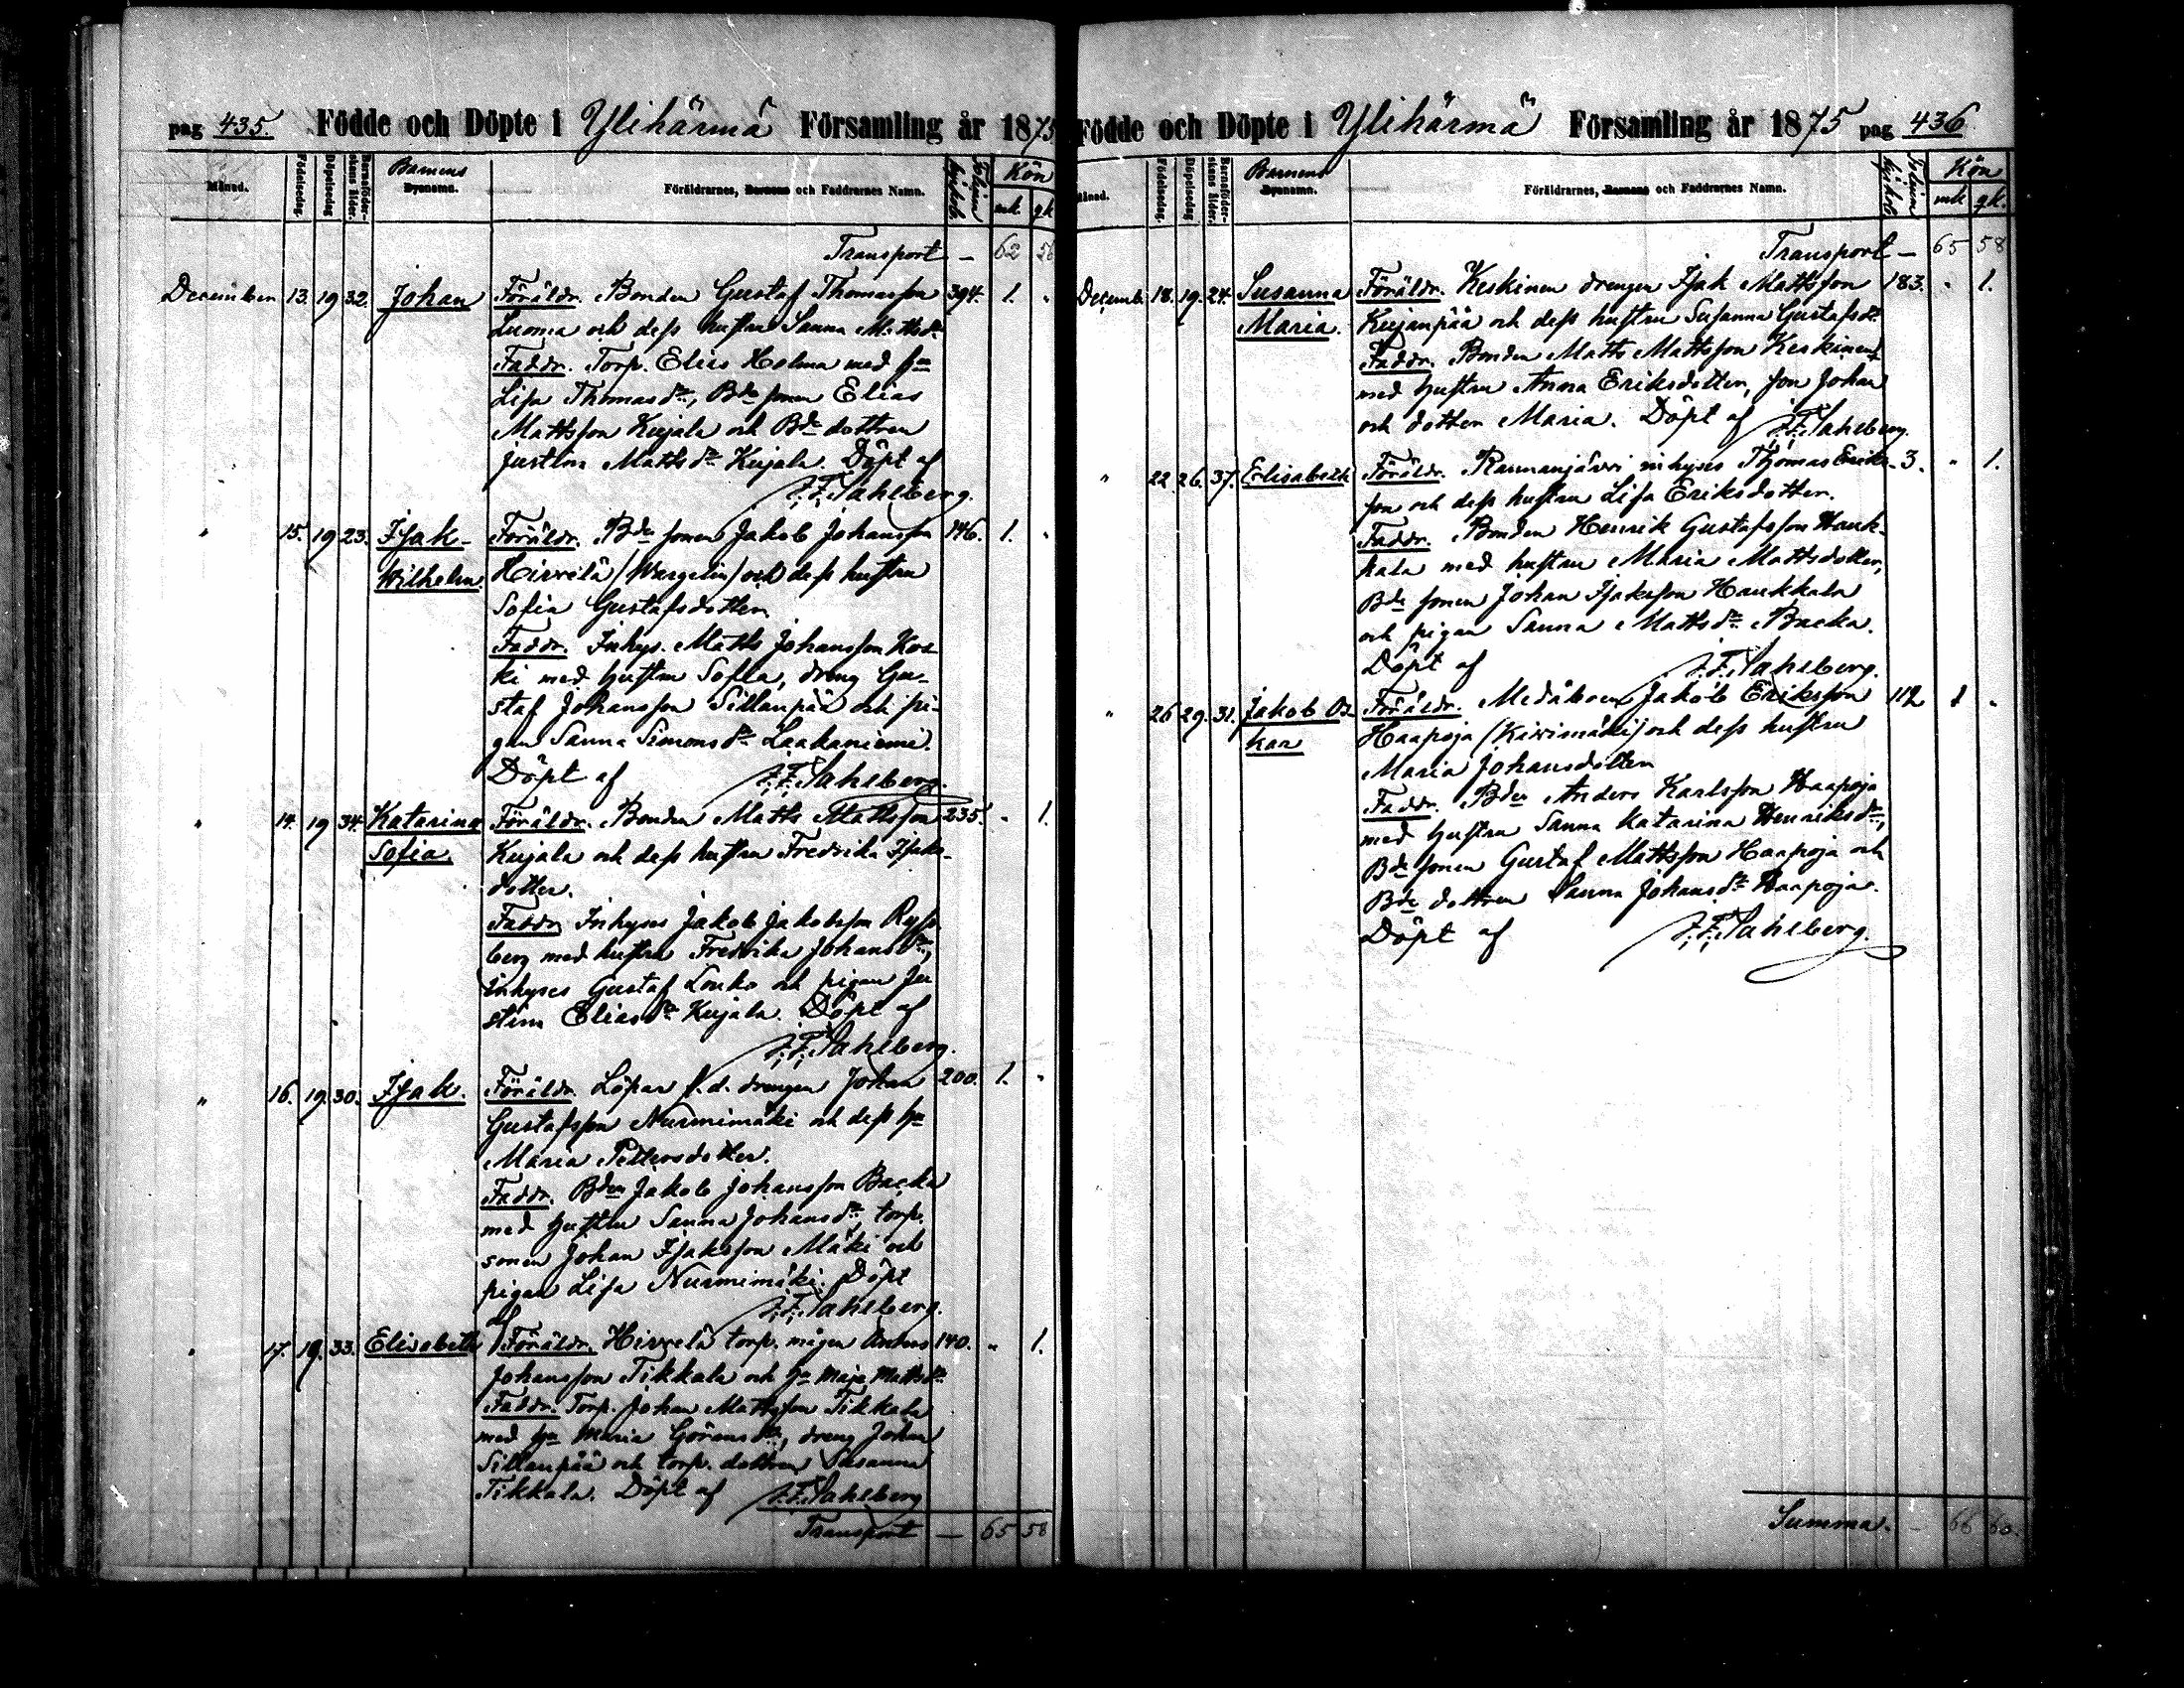 pag 435. Födde och Döpte i Ylihärmä Församling år 1875
Månad. Födelsedag. Döpelsedag Barnaföderskans ålder. Barnens Dopnamn. Föräldrarnes, Barnens och Faddrarnes Namn. Kön
mk. qk.
Transport — 62 56
December 13. 19 32. Johan Föräldr. Bonden Gustaf Thomasson 394. 1. "
Luoma och dess hustru Sanna Mattsdr.
Faddr. Torp. Elias Holma med hu
Lisa Thomasdr, Bde sonen Elias
Mattsson Kujala och Bde dottren
Justina Mattsdr Kujala. Döpt af
J. F. Sahlberg.
" 15. 19 23. Isak- Föräldr. Bde sonen Jakob Johansson 146. 1. "
Wilhelm. Hirvelä (Wargelin) och dess hustru
Sofia Gustafsdotter
Faddr. Inhys. Matts Johansson Kos-
ki med hustru Sofia, dreng Gu-
staf Johansson Sillanpää och pi-
gan Sanna Simonsdr Laakaniemi.
Döpt af J. F. Sahlberg.
" 14. 19 34. Katarina Föräldr. Bonden Matts Mattsson 235. " 1.
Sofia. Kujala och dess hustru Fredrika Isaks-
dotter.
Faddr. Inhyses Jakob Jakobsson Ryss
berg med hustru Fredrika Johansdr,
inhyses Gustaf Louko och pigan Ju
stina Eliasdr Kujala. Döpt af
J. F. Sahlberg.
" 16. 19. 30. Isak. Föräldr. Löpar f.d. drengen Johan 200. 1. "
Gustafsson Nurmimäki och dess hu
Maria Pettersdotter.
Faddr. Bden Jakob Johansson Backa
med hustru Sanna Johansdr, torp.
sonen Johan Isaksson Mäki och
pigan Lisa Nurmimäki. Döpt
af J. F. Sahlberg.
" 17. 19. 33. Elisabeth Föräldr. Hirvelä torp. mågen Anders 140. " 1.
Johansson Tikkala och hu Maja Mattsdr
Faddr. Torp. Johan Mattsson Tikkala
med hu Maria Göransdr, dreng Johan
Sillanpää och torp. dottren Susanna
Tikkala. Döpt af J. F. Sahlberg
Transport — 65 58
Födde och Döpte i Ylihärmä Församling år 1875 pag 436
Månad. Födelsedag. Döpelsedag Barnaföderskans ålder. Barnens Dopnamn. Föräldrarnes, Barnens och Faddrarnes Namn. Kön
mk qk.
Transport — 65 58
Decemb. 18. 19. 24. Susanna Föräldr. Keskinen drengen Isak Mattsson 183. " 1.
Maria. Kujanpää och dess hustru Susanna Gustafsdr.
Faddr. Bonden Matts Mattsson Keskinen
med hustru Anna Eriksdotter, son Johan
och dotter Maria. Döpt af J. F. Sahlberg.
" 22. 26. 37. Elisabeth Föräldr. Rannanjärvi inhyses Thomas Eriks- 3. " 1.
son och dess hustru Lisa Eriksdotter.
Faddr. Bonden Henrik Gustafsson Hauk-
kala med hustru Maria Mattsdotter,
Bde sonen Johan Isaksson Haukkala
och pigan Sanna Mattsdr Backa.
Döpt af J. F. Sahlberg.
" 26 29. 31. Jakob Os- Föräldr. Medåboen Jakob Eriksson 112 1 "
kar Haapoja (Kivimäki) och dess hustru
Maria Johansdotter
Faddr. Bden Anders Karlsson Haapoja
med hustru Sanna Katarina Henriksdr,
Bde sonen Gustaf Mattsson Haapoja och
Bde dottren Sanna Johansdr Haapoja.
Döpt af J. F. Sahlberg.
Summa. — 66 60.